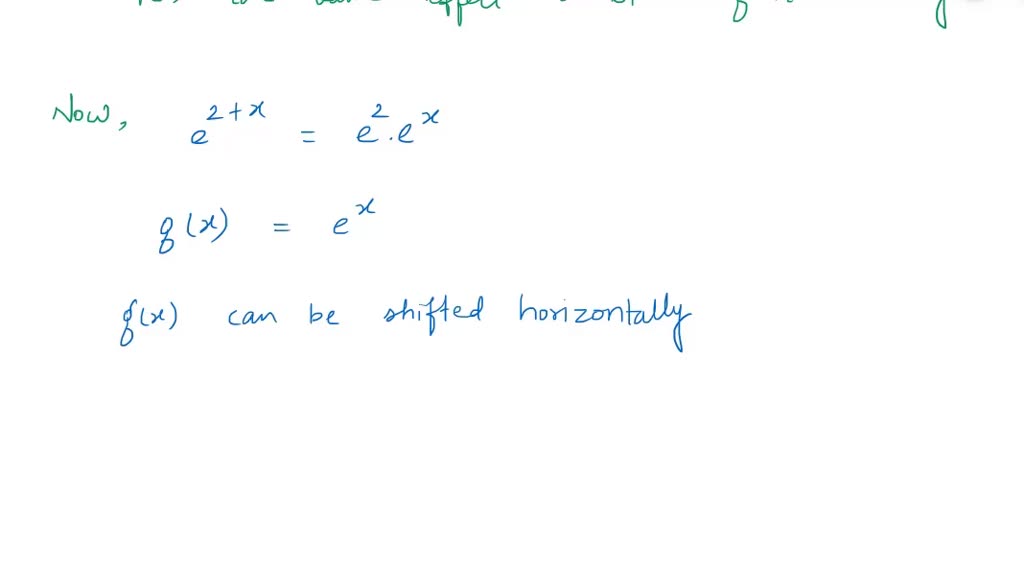 Now, e^{2+x} = e^2 . e^x
g(x) = e^x
g(x) can be shifted horizontally